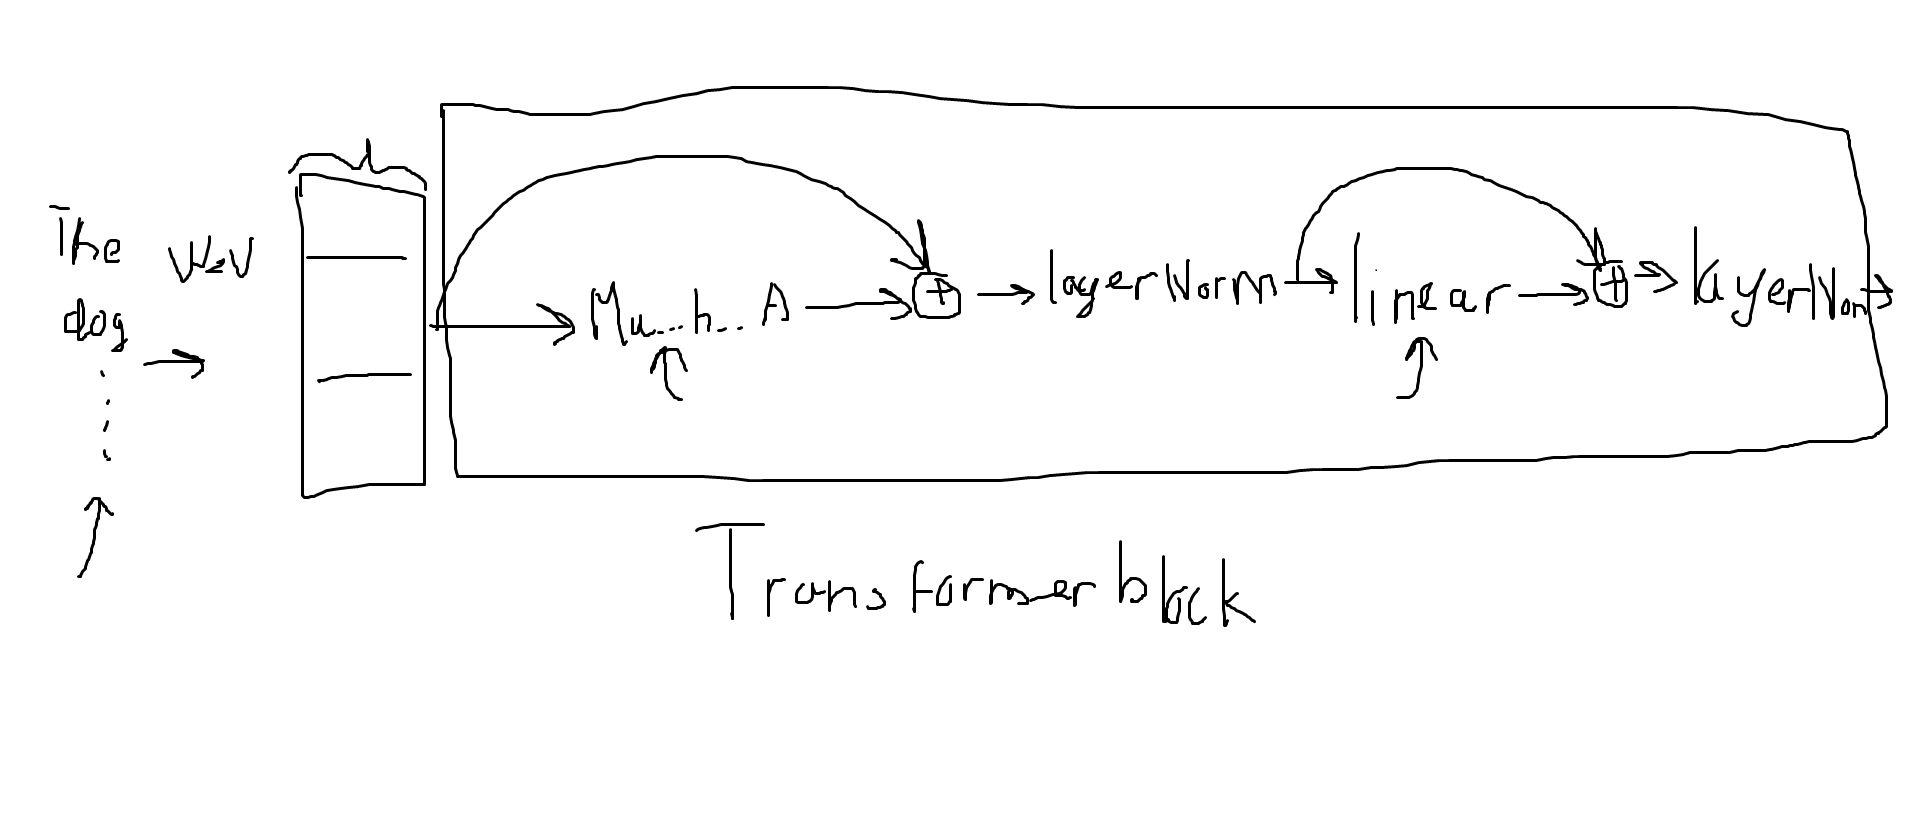 The
dog
W2V
Mu...h...A
+
layerNorm
linear
+
layerNorm
Transformer block